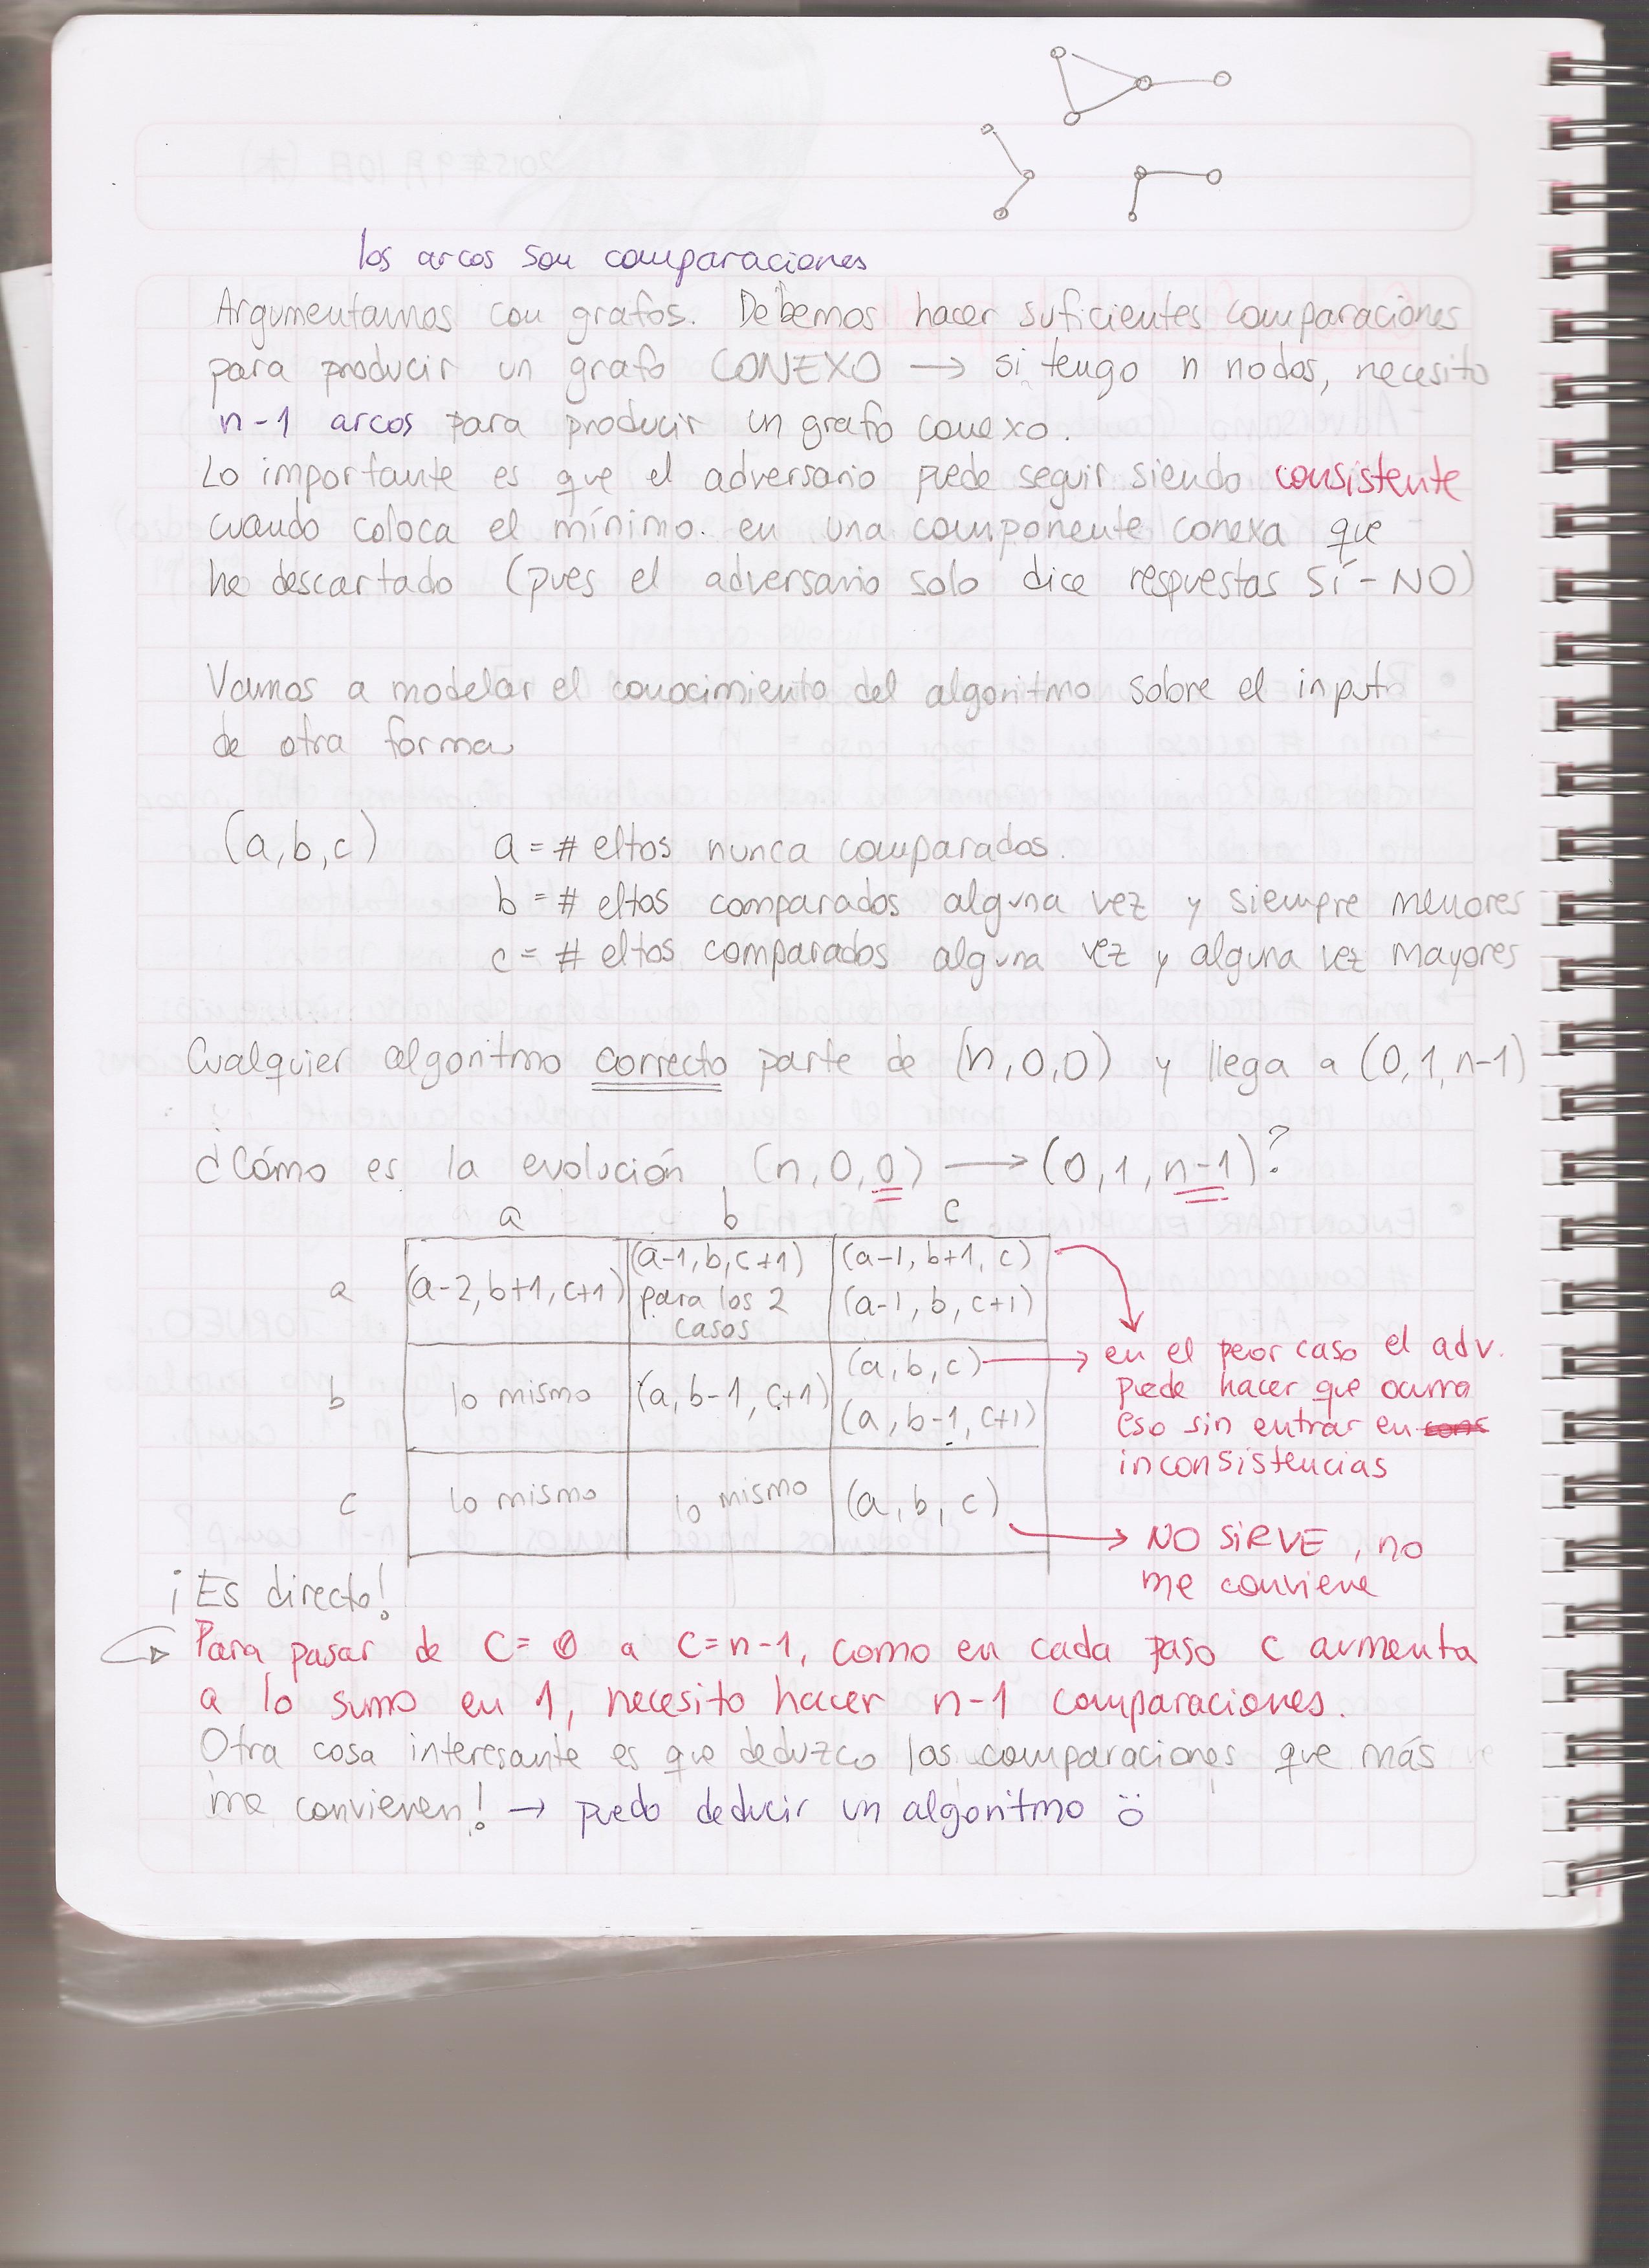 los arcos son comparaciones
Argumentamos con grafos. Debemos hacer suficientes comparaciones
para producir un grafo CONEXO → si tengo n nodos, necesito
n-1 arcos para producir un grafo conexo.
Lo importante es que el adversario puede seguir siendo consistente
cuando coloca el mínimo. en una componente conexa que
he descartado (pues el adversario solo dice respuestas SÍ-NO)
Vamos a modelar el conocimiento del algoritmo sobre el input
de otra forma
(a,b,c) a = # eltos nunca comparados.
b = # eltos comparados alguna vez y siempre menores
c = # eltos comparados alguna vez y alguna vez mayores
Cualquier algoritmo correcto parte de (n,0,0) y llega a (0,1,n-1)
¿Cómo es la evolución (n,0,0) → (0,1,n-1)?
a b c
a (a-2,b+1,c+1) (a-1,b,c+1) para los 2 casos (a-1,b+1,c) (a-1,b,c+1)
b lo mismo (a,b-1,c+1) (a,b,c) (a,b-1,c+1)
c lo mismo lo mismo (a,b,c)
→ en el peor caso el adv.
puede hacer que ocurra
eso sin entrar en
inconsistencias
→ NO SIRVE, no
me conviene
¡Es directo!
Para pasar de c=0 a c=n-1, como en cada paso c aumenta
a lo sumo en 1, necesito hacer n-1 comparaciones.
Otra cosa interesante es que deduzco las comparaciones que más
me convienen! → puedo deducir un algoritmo ö